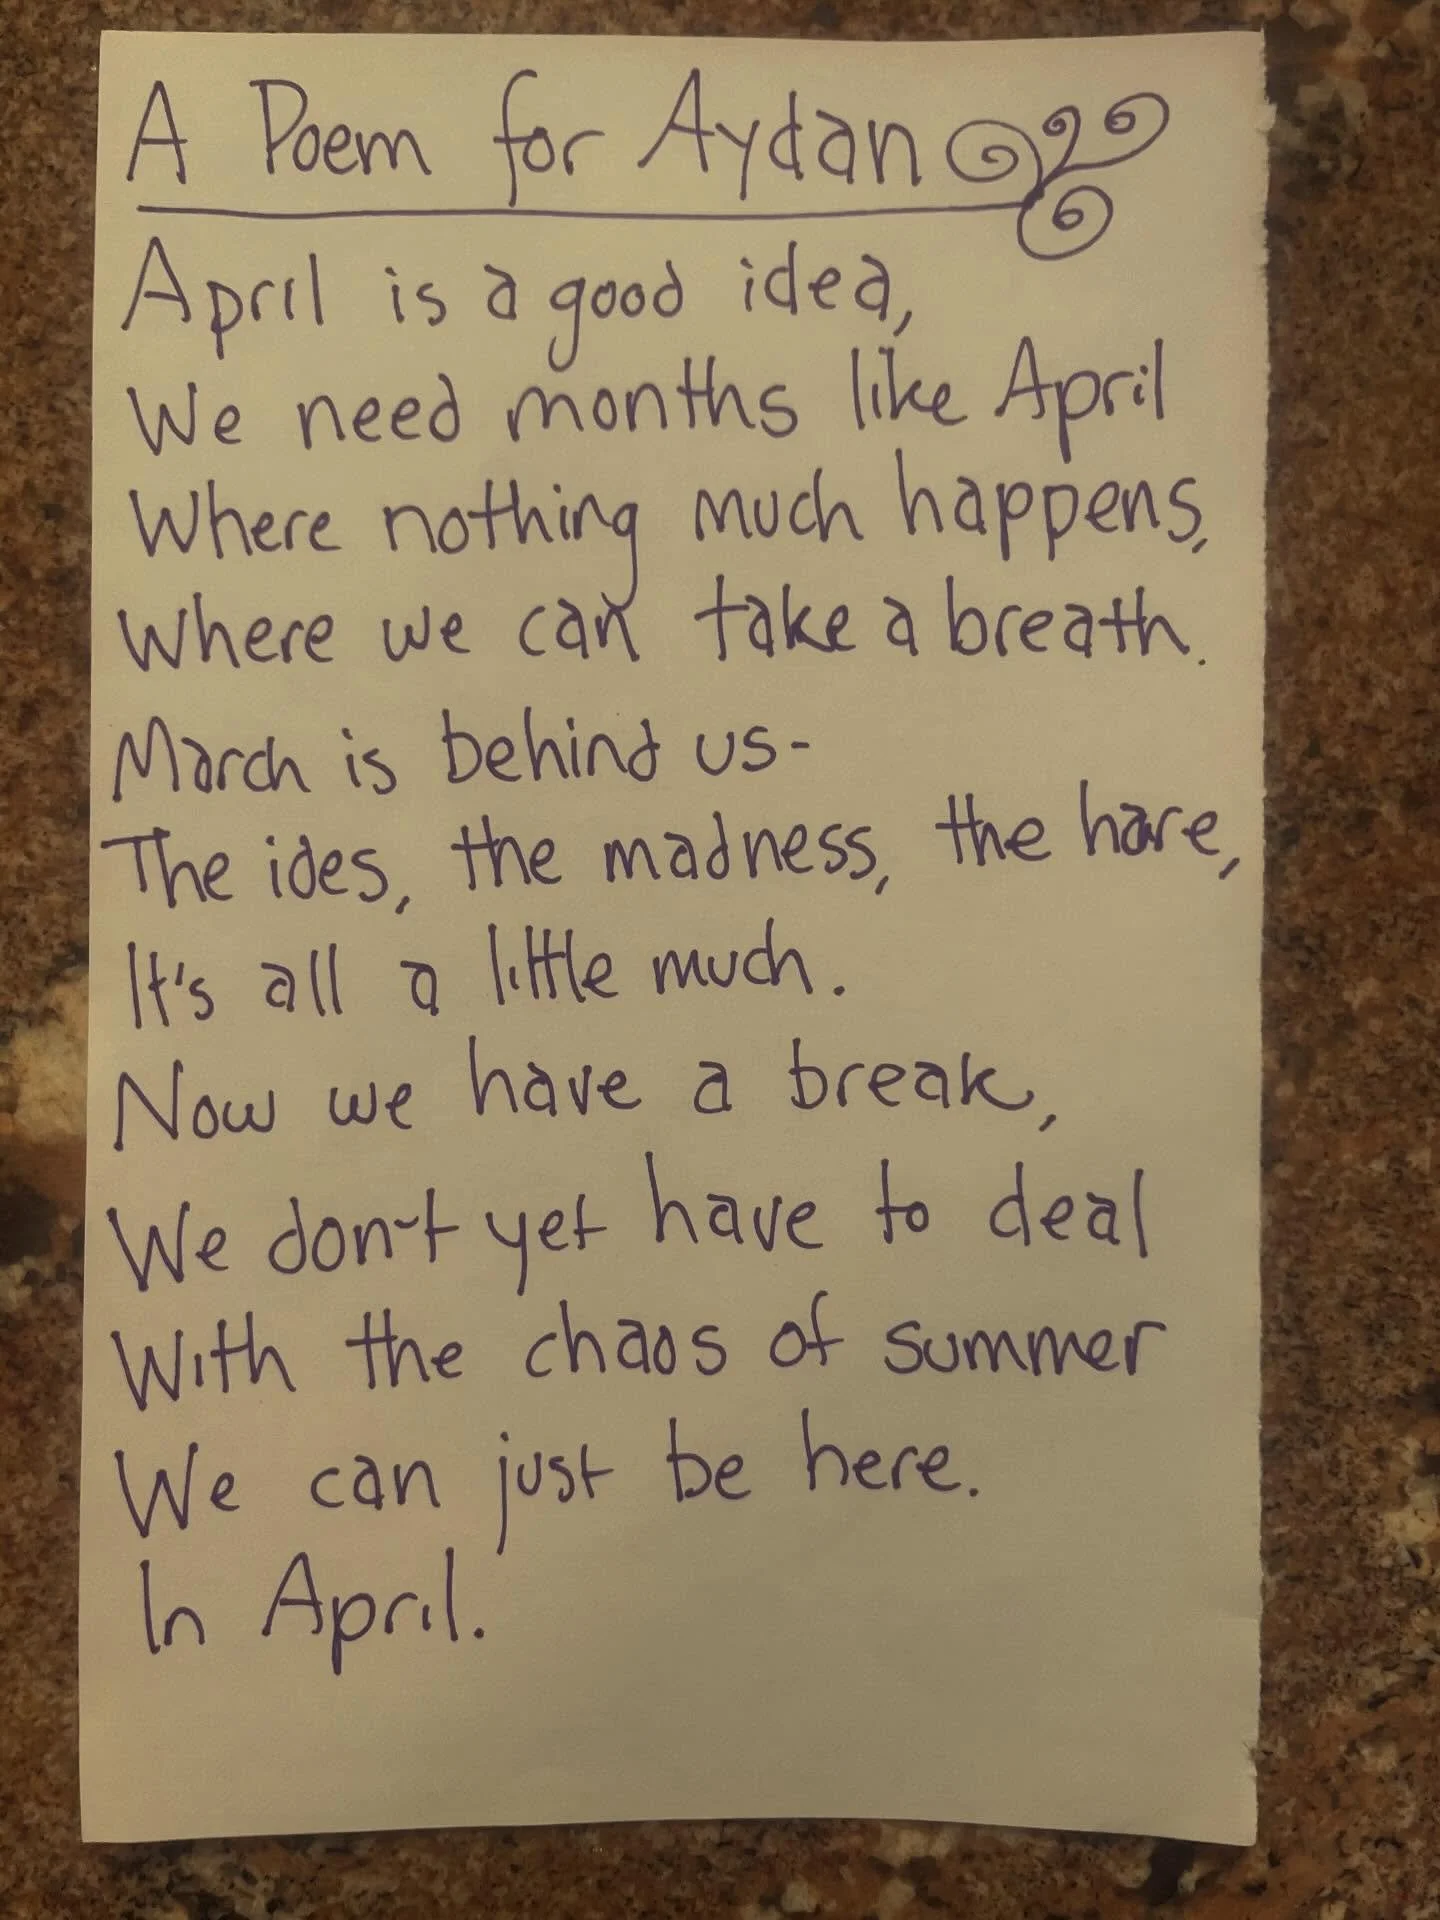 A Poem for Aydan
April is a good idea,
We need months like April
Where nothing much happens,
Where we can take a breath.
March is behind us-
The ides, the madness, the hare,
It's all a little much.
Now we have a break,
We don't yet have to deal
With the chaos of summer
We can just be here.
In April.